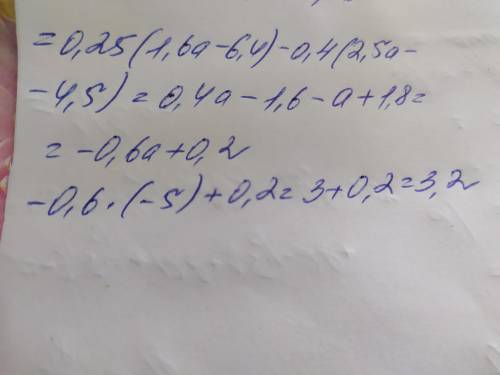 = 0,25(1,6a-6,4)-0,4(2,5a-
-4,5) = 0,4a-1,6-a+1,8=
= -0,6a+0,2
-0,6·(-5)+0,2= 3+0,2=3,2